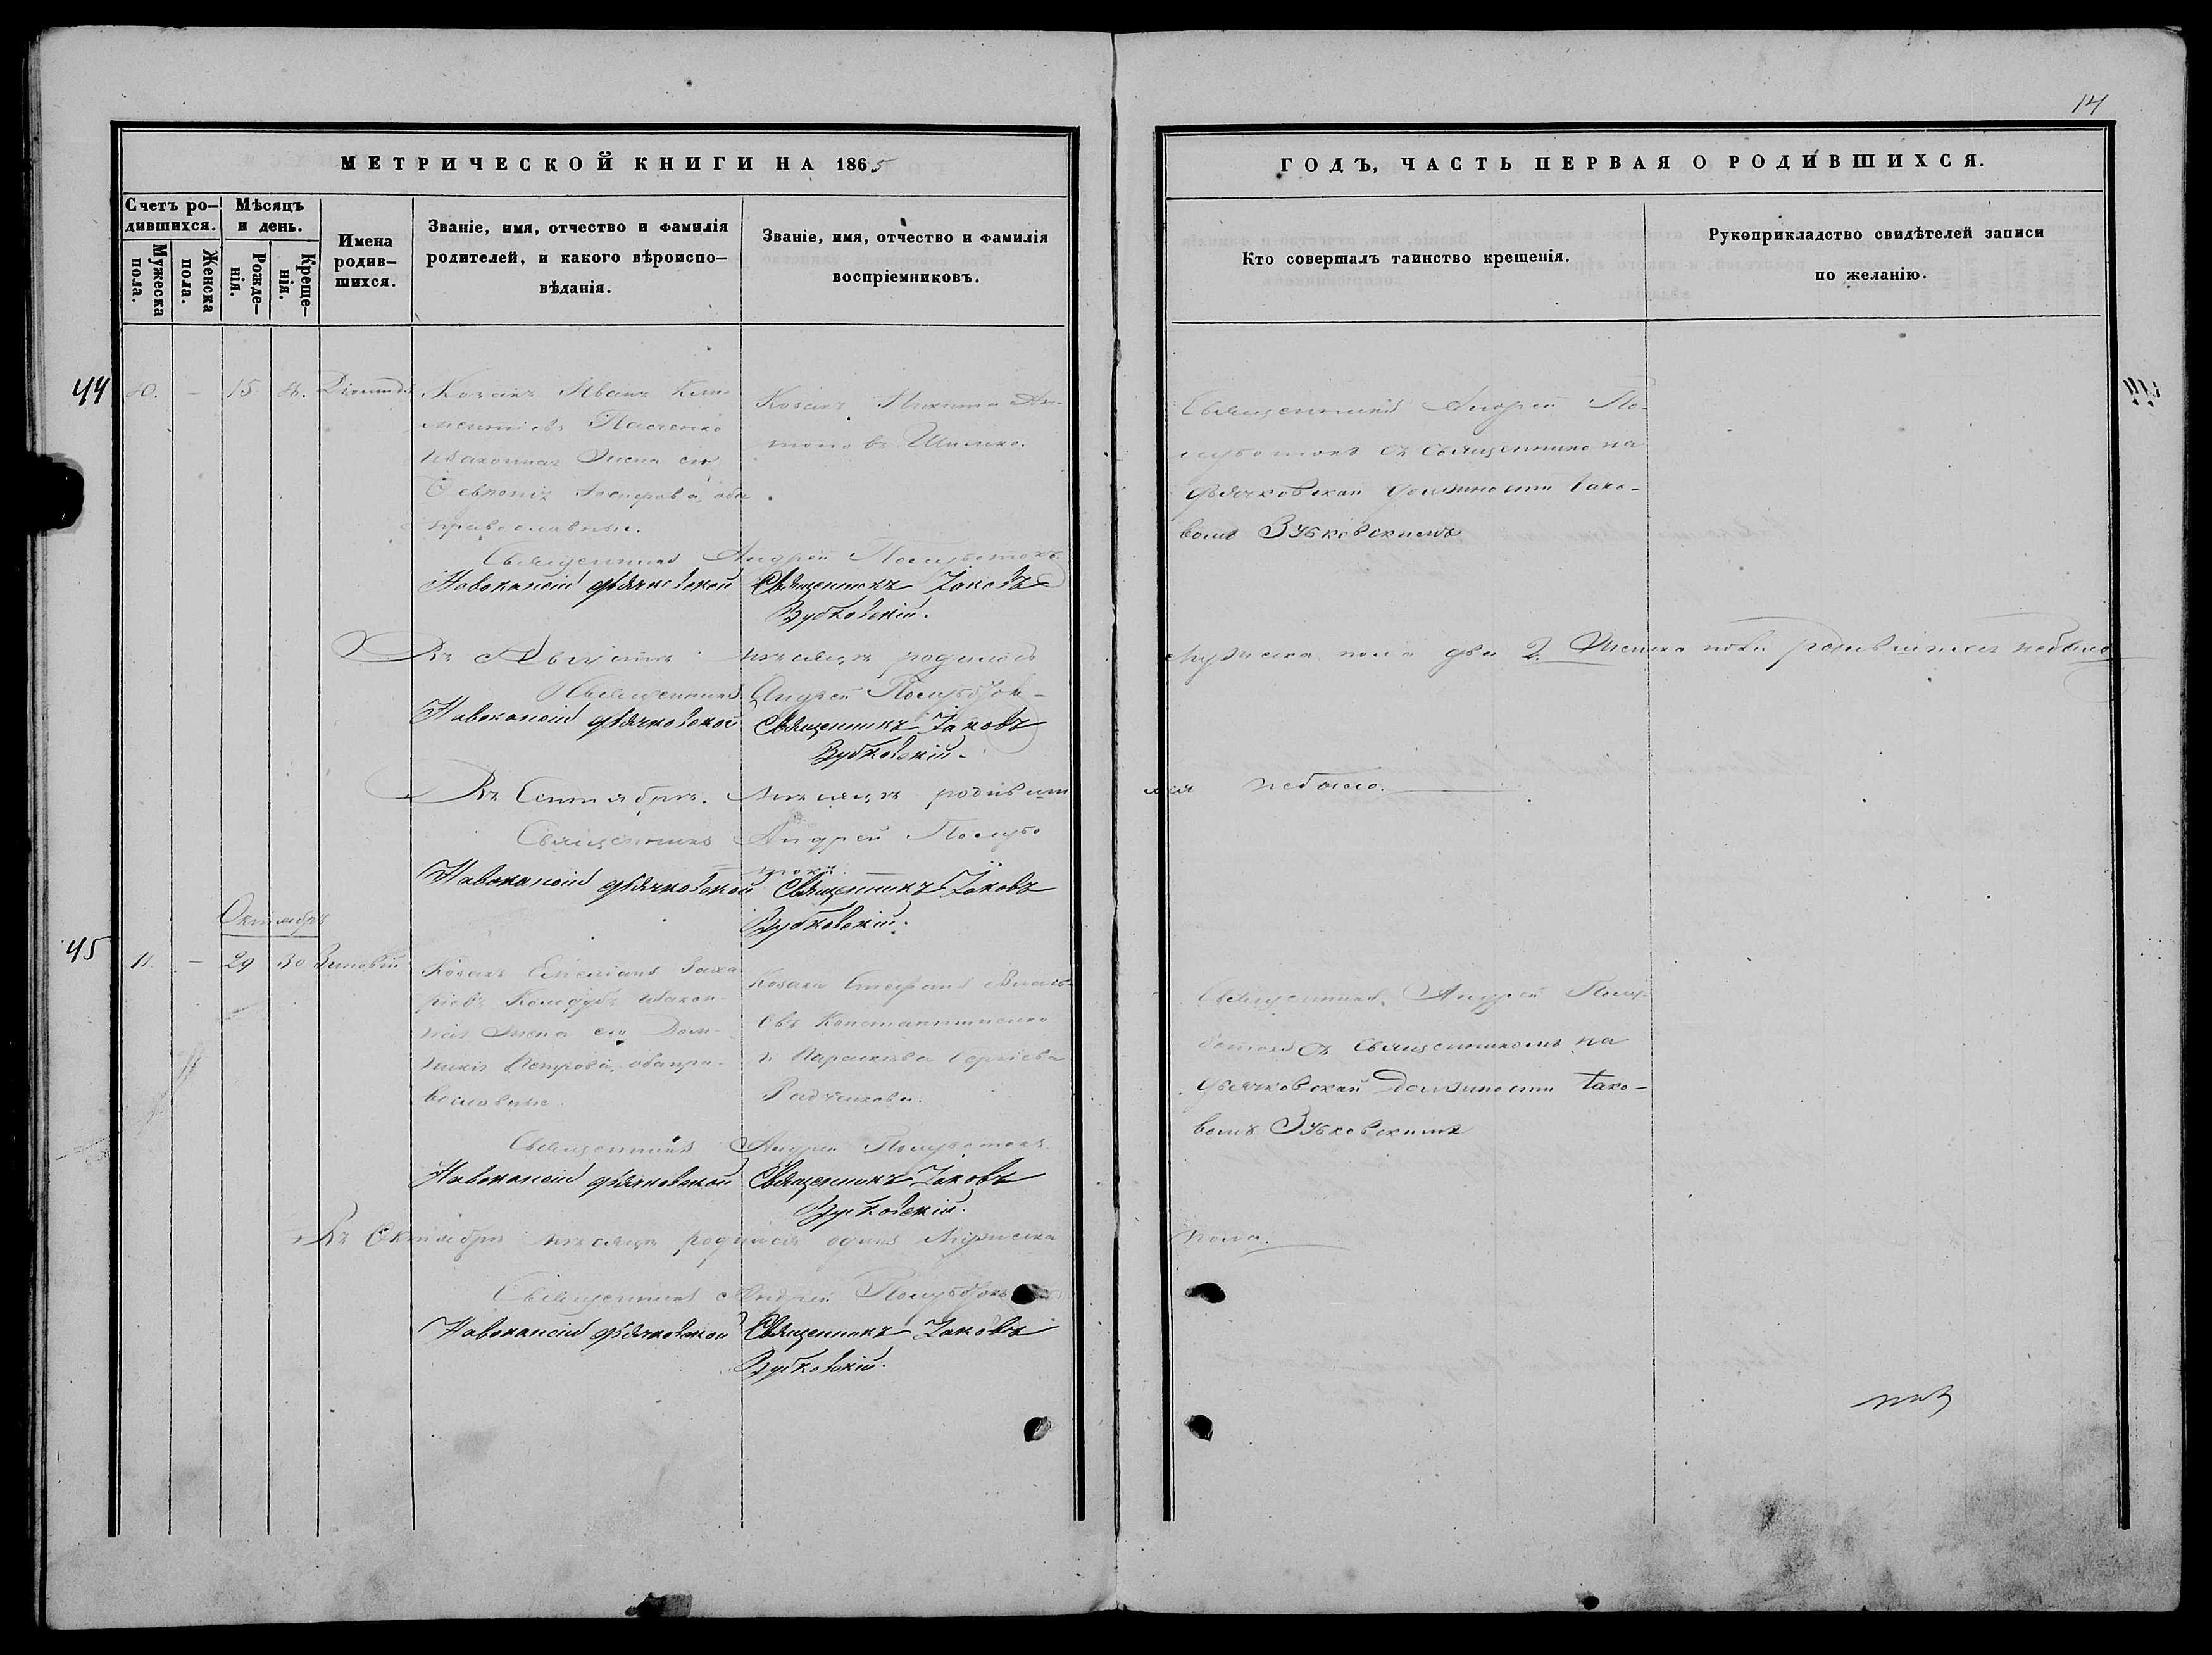 14
МЕТРИЧЕСКОЙ КНИГИ НА 1865
ГОДЪ, ЧАСТЬ ПЕРВАЯ О РОДИВШИХСЯ.
Счетъ ро-
дившихся.
Мужеска
пола.
Женска
пола.
Мѣсяцъ
и день.
Рожде-
нія.
Креще-
нія.
Имена
родив-
шихся.
Званіе, имя, отчество и фамилія
родителей, и какого вѣроиспо-
вѣданія.
Званіе, имя, отчество и фамилія
воспріемниковъ.
Кто совершалъ таинство крещенія.
Рукоприкладство свидѣтелей записи
по желанію.
44
10. - 15
Козакъ Иванъ Кли-
ментіевъ
и законная жена его
Февронія оба
православные.
Козакъ Никита Ан-
тоновъ
Священникъ Андрей По-
луботокъ съ священнико на
дьячковской должности Іако-
вомъ Зубковскимъ
Священникъ Андрей Полуботокъ
На вокансіи дьячковской Священникъ Іаковъ
Зубковскій.
Въ Августѣ мѣсяцѣ родилось мужеска пола два 2. Женска пола родившихся небыло
Священникъ Андрей Полуботок-
На вокансіи дьячковской Священникъ Іаковъ
Зубковскій.
Въ Сентябрѣ мѣсяцѣ родивших ся небыло.
Священникъ Андрей Полубо
токъ.
На вокансіи дьячковской Священникъ Іаковъ
Зубковскій.
Октябрь
45
11. - 29 30 Зиновій
Козакъ Емеліанъ Заха-
ріевъ Коледубъ и закон-
ная жена его Дом-
никія Петрова, оба пра-
вославные.
Козаки Стефанъ Василь-
евъ Константиненко
и Параскева Сергіева
Радченкова.
Священникъ Андрей Полу-
ботокъ съ священникомъ на
дьячковской должности Іако-
вомъ Зубковскимъ
Священникъ Андрей Полуботокъ
На вокансіи дьячковской Священникъ Іаковъ
Зубковскій.
Въ Октябрѣ мѣсяцѣ родился одинъ мужеска пола.
Священникъ Андрей Полуботокъ
На вокансіи дьячковской Священникъ Іаковъ
Зубковскій.